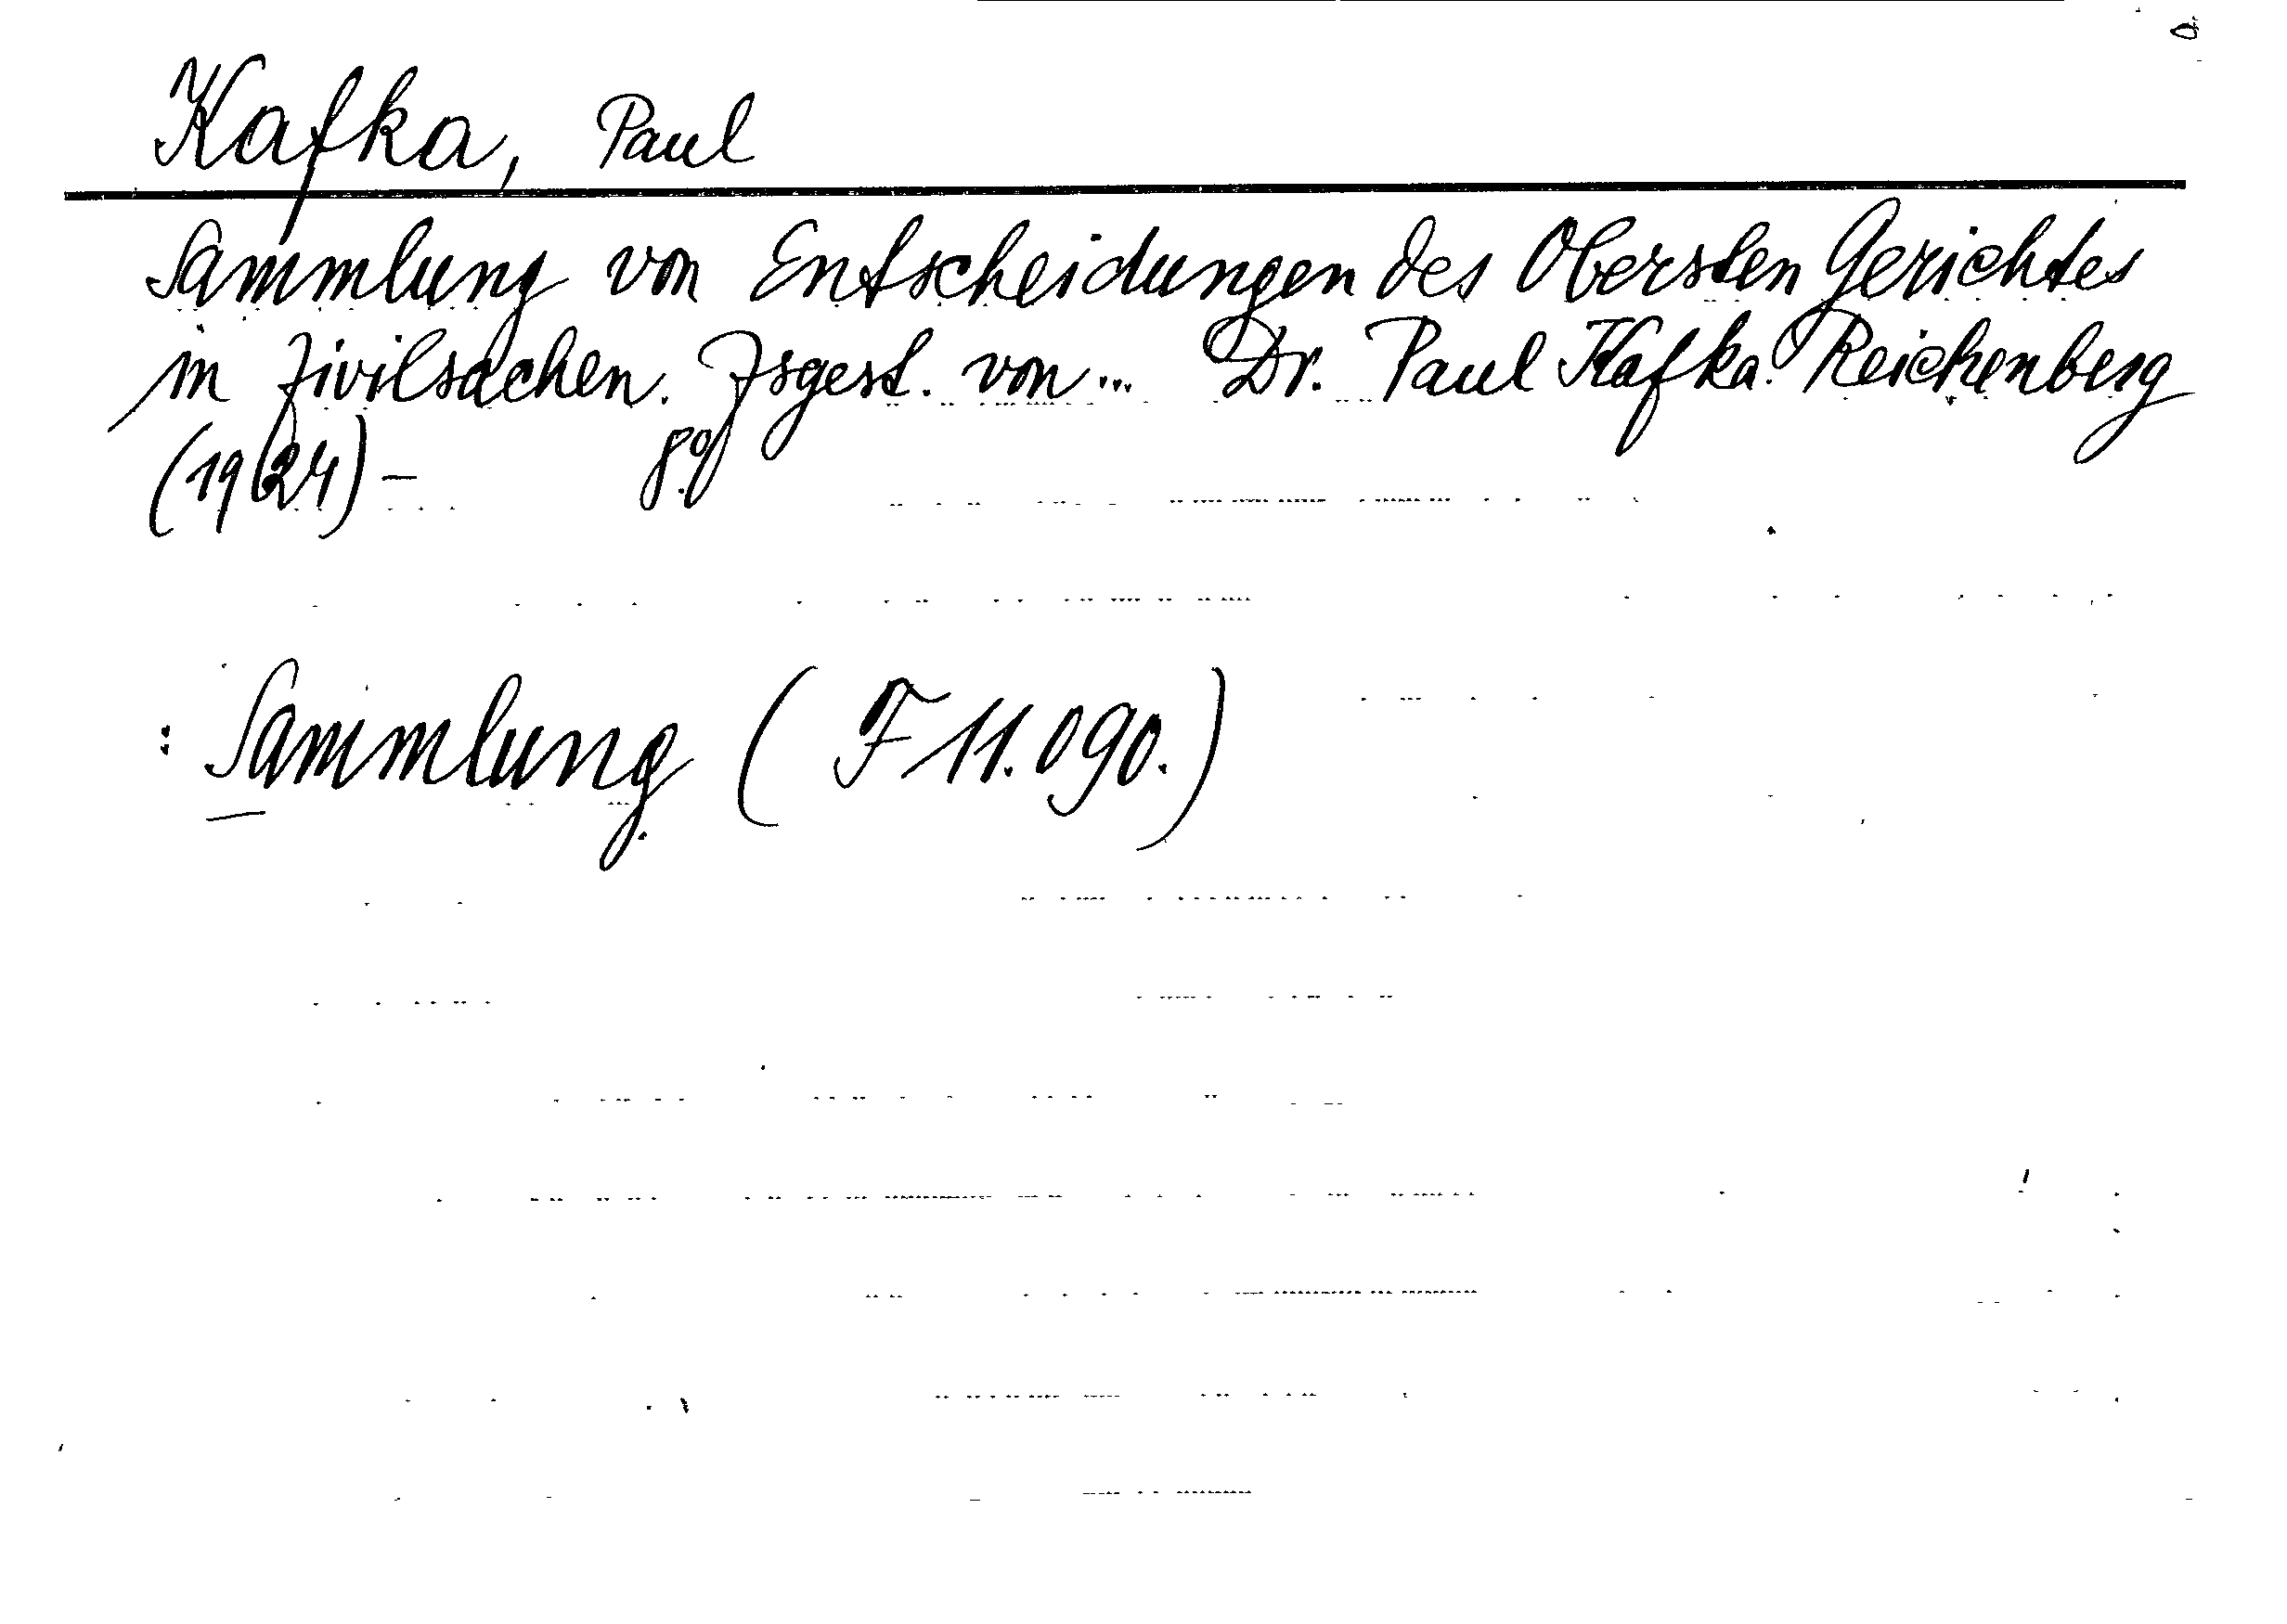 Kafka, Paul
Sammlung von Entscheidungen des Obersten Gerichtes
in Zivilsachen. Zsgest. von... Dr. Paul Kafka. Reichenberg
(1924)- 8°
: Sammlung (F 11.090.)